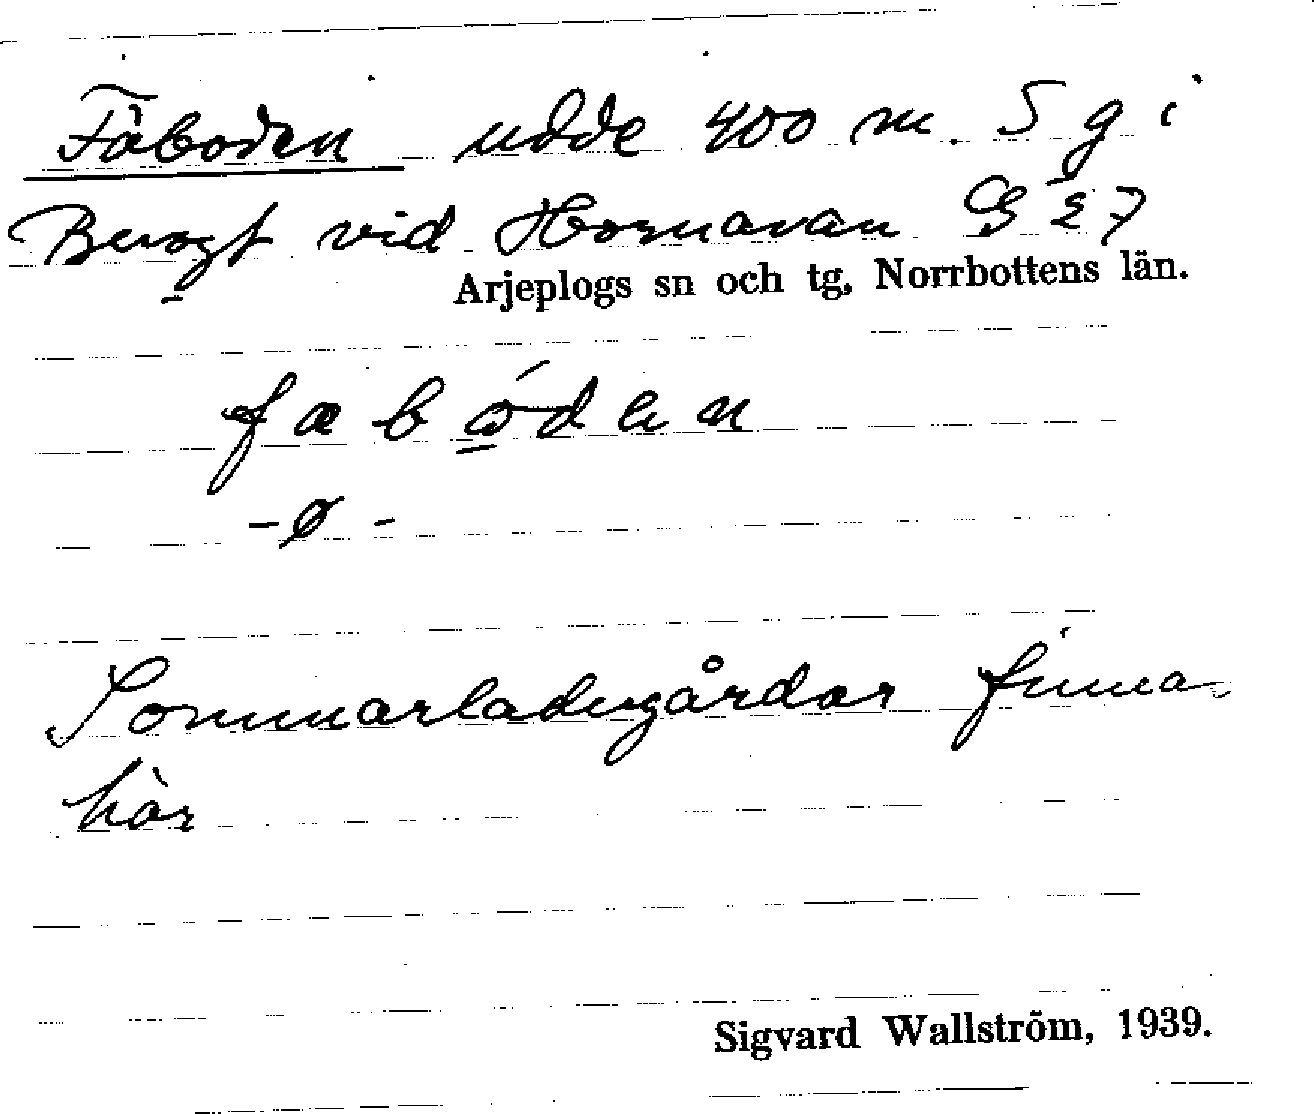 Fäboden udde 400 m. S g i
vid Hornavan G 27
Arjeplogs sn och tg, Norrbottens län.
-ø-
Sommarladugårdar finna
här
Sigvard Wallström, 1939.